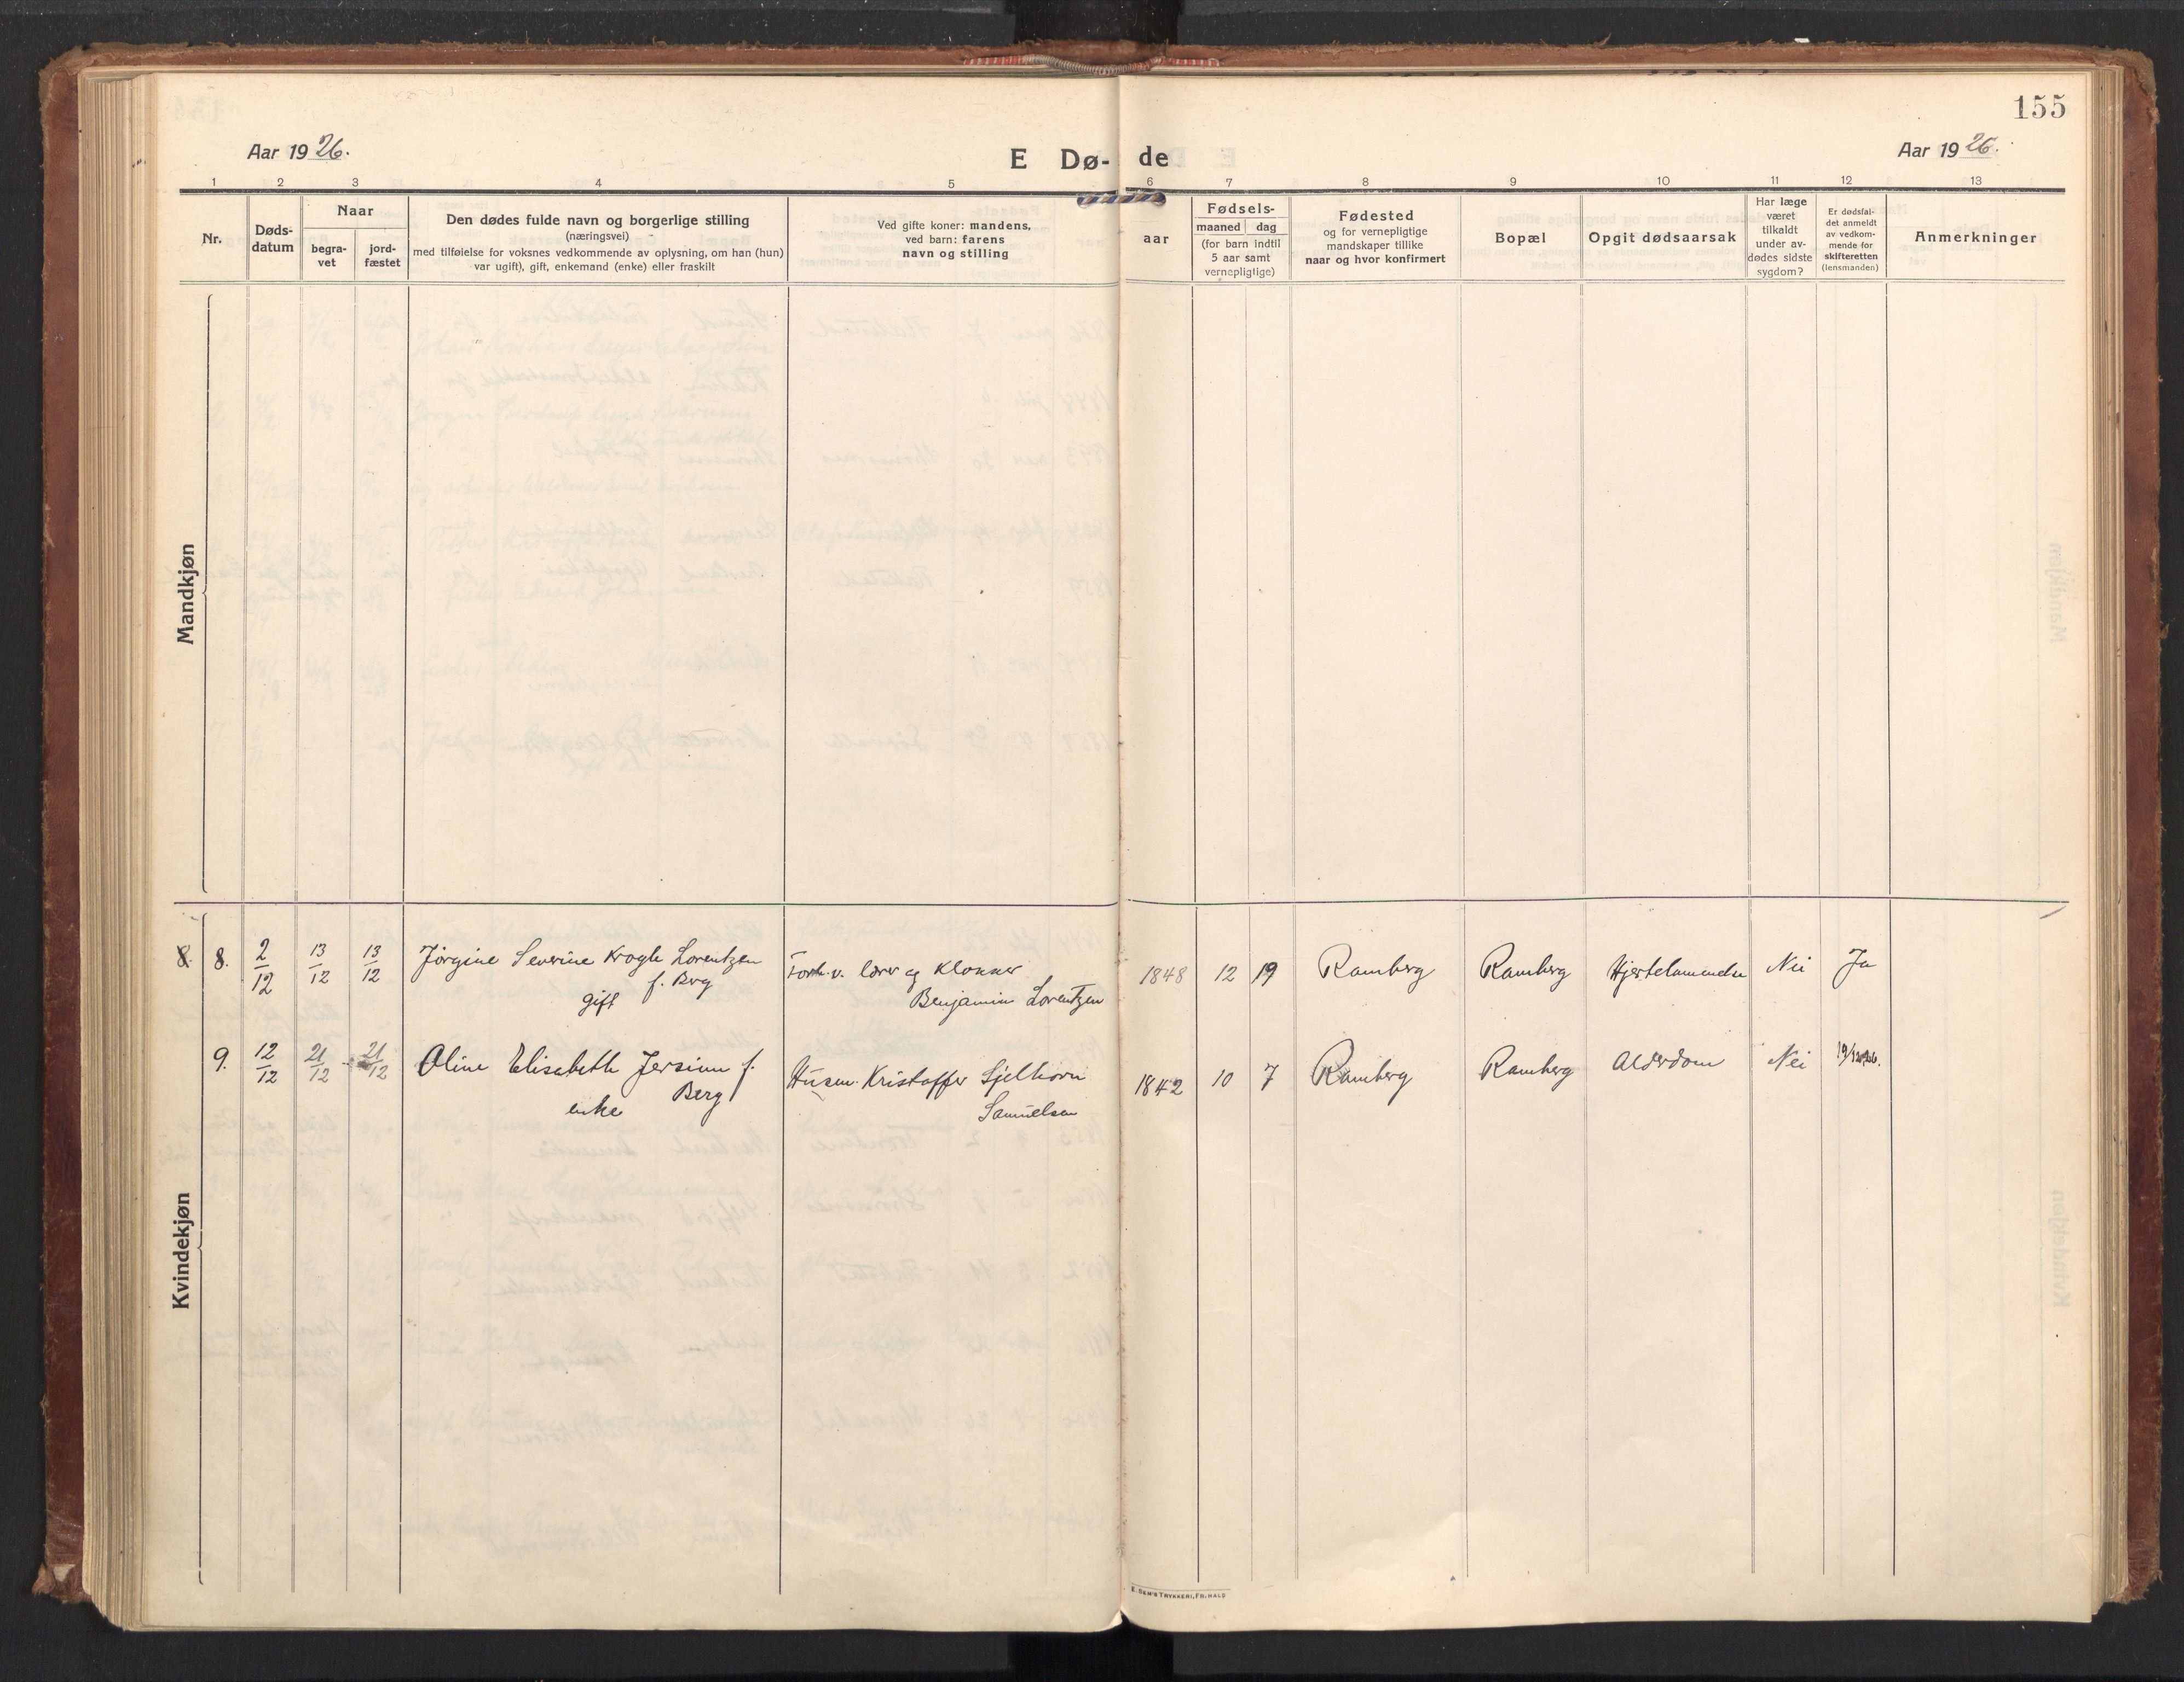 155
Aar 1926.
E Dø-
de
Aar 1926.
1 2 3 4 5 6 7 8 9 10 11 12 13
Nr.
Døds-
datum
Naar
begra-
vet
jord-
fæstet
Den dødes fulde navn og borgerlige stilling
(næringsvei)
med tilføielse for voksnes vedkommende av oplysning, om han (hun)
var ugift), gift, enkemand (enke) eller fraskilt
Ved gifte koner: mandens,
ved barn: farens
navn og stilling
aar
Fødsels-
maaned dag
(for barn indtil
5 aar samt
vernepligtige)
Fødested
og for vernepligtige
mandskaper tillike
naar og hvor konfirmert
Bopæl
Opgit dødsaarsak
Har læge
været
tilkaldt
under av-
dødes sidste
sygdom?
Er dødsfal-
det anmeldt
av vedkom-
mende for
skifteretten
(lensmanden)
Anmerkninger
Mandkjøn
Kvindekjøn
8. 8. 2/12 13/12 13/12 Jørgine Severine Krogh Lorentzen
f. Berg
gift
Forh.v. lærer og klokker
Benjamin Lorentzen
1848 12 19 Ramberg Ramberg Hjertelammelse Nei Ja
9. 12/12 21/12 21/12 Oline Elisabeth Jersinn f.
Berg
enke
Husm. Kristoffer Sjelhorn
Samuelsen
1842 10 7 Ramberg Ramberg Alderdom Nei
E. SEM'S TRYKKERI, FR.HALD